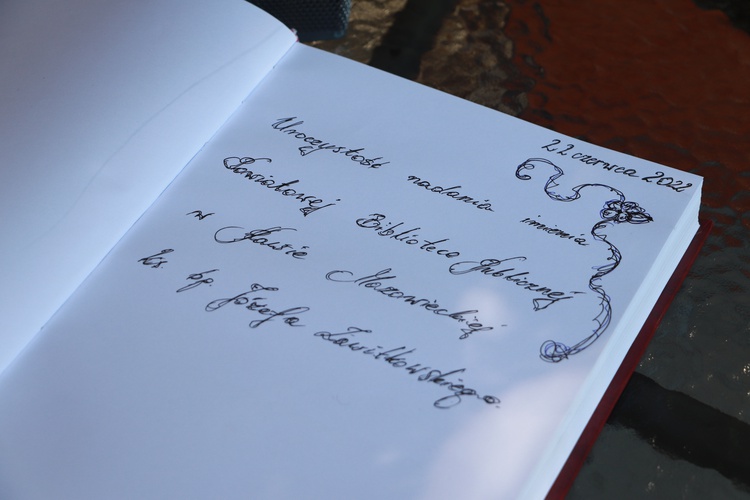 22 czerwca 2022
Uroczystość nadania imienia
Powiatowej Bibliotece Publicznej
w Rawie Mazowieckiej
ks. bp. Józefa Zawitkowskiego.